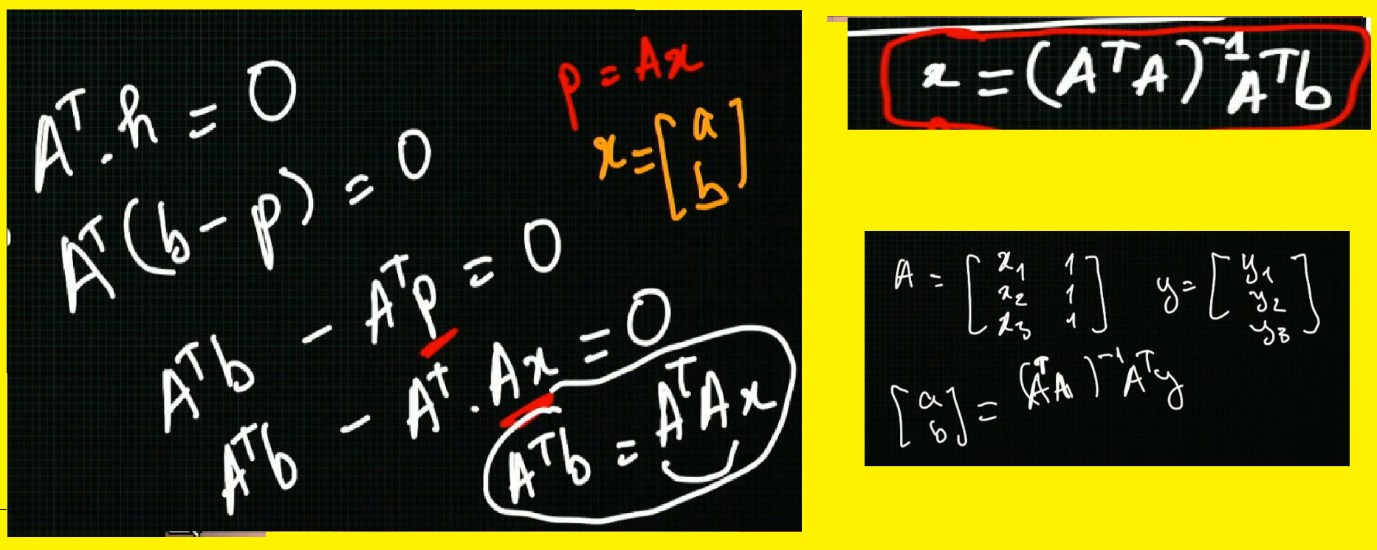 Aᵀ.h = 0
Aᵀ(b - p) = 0
Aᵀb - Aᵀp = 0
Aᵀb - Aᵀ.Ax = 0
Aᵀb = AᵀAx
p = Ax
x = [a
b]
x = (AᵀA)⁻¹Aᵀb
A = [x₁ 1
x₂ 1
x₃ 1]
y = [y₁
y₂
y₃]
[a
b] = (AᵀA)⁻¹Aᵀy